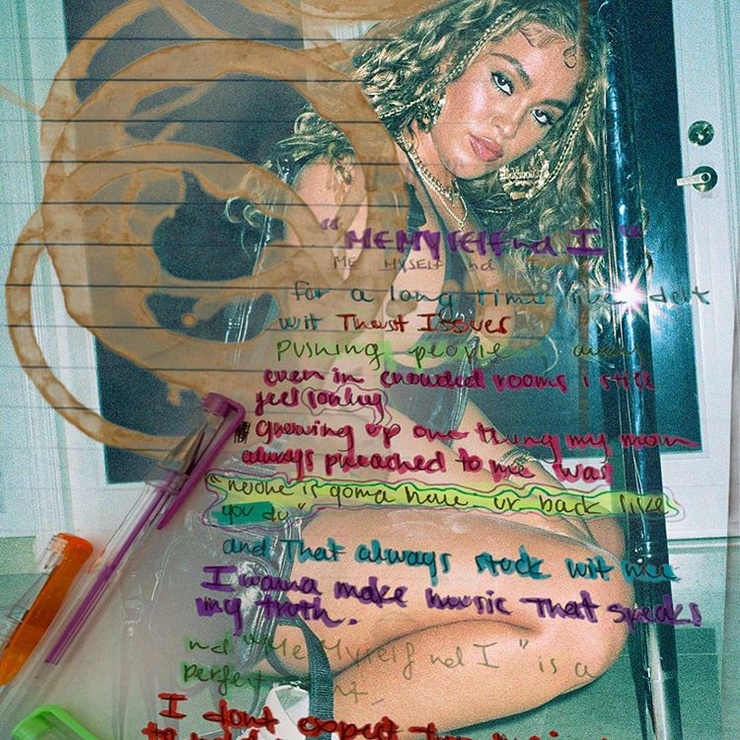 "MEMYSELF nd I"
ME MYSELF nd
for a long time ive delt
wit Thrust Issues
pushing people away
even in crowded rooms i still
feel lonley
Growing up one thing my mom
always preached to me was
"noone is gonna have ur back like
you do"
and That always stuck wit me
I wanna make music That speaks
my truth.
nd "Me Myself nd I" is a
perfect
I dont expect